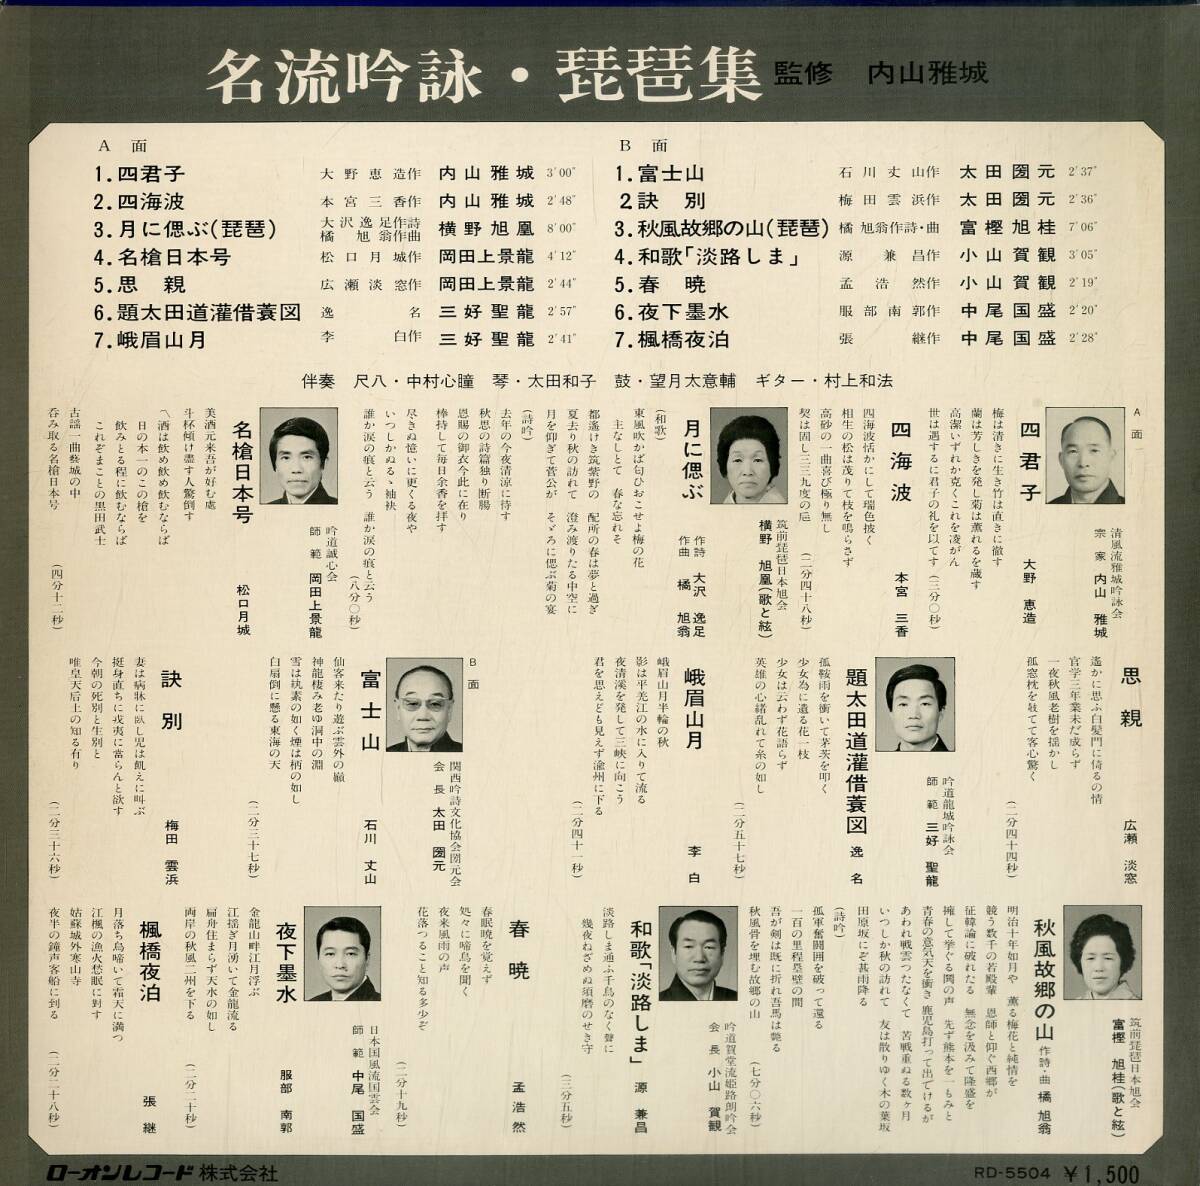 名流吟詠・琵琶集 監修 内山雅城
A 面
1.四君子 大野恵造作 内山雅城 3'00"
2.四海波 本宮三香作 内山雅城 2'48"
3.月に偲ぶ(琵琶) 大沢逸足作詩 橘旭翁作曲 横野旭凰 8'00"
4.名槍日本号 松口月城作 岡田上景龍 4'12"
5.思親 広瀬淡窓作 岡田上景龍 2'44"
6.題太田道灌借蓑図 逸名 三好聖龍 2'57"
7.峨眉山月 李白作 三好聖龍 2'41"
B 面
1.富士山 石川丈山作 太田圀元 2'37"
2.訣別 梅田雲浜作 太田圀元 2'36"
3.秋風故郷の山(琵琶) 橘旭翁作詩・曲 富樫旭桂 7'06"
4.和歌「淡路しま」 源兼昌作 小山賀観 3'05"
5.春暁 孟浩然作 小山賀観 2'19"
6.夜下墨水 服部南郭作 中尾国盛 2'20"
7.楓橋夜泊 張継作 中尾国盛 2'28"
伴奏 尺八・中村心瞳 琴・太田和子 鼓・望月太意輔 ギター・村上和法
A面
清風流雅城吟詠会
宗家 内山雅城
四君子 大野恵造
梅は清きに生き竹は直きに徹す
蘭は芳しきを発し菊は薫れるを蔵す
高潔いずれか克くこれを凌がん
世は遇するに君子の礼を以てす (三分〇秒)
四海波 本宮三香
四海波恬かにして瑞色披く
相生の松は茂りて枝を鳴らさず
高砂の一曲喜び極り無し
契は固し三三九度の巵 (二分四十八秒)
筑前琵琶日本旭会
横野旭凰(歌と絃)
月に偲ぶ 作詩 大沢逸足
作曲 橘旭翁
(和歌)
東風吹かば匂ひおこせよ梅の花
主なしとて 春な忘れそ
都遙けき筑紫野の 配所の春は夢と過ぎ
夏去り秋の訪れて 澄み渡りたる中空に
月を仰ぎて菅公が そゞろに偲ぶ菊の宴
(詩吟)
去年の今夜清涼に待す
秋思の詩篇独り断腸
恩賜の御衣今此に在り
棒持して毎日余香を拝す
尽きぬ憶いに更くる夜や
いつしかぬるゝ袖袂
誰か涙の痕と云う 誰か涙の痕と云う (八分〇秒)
吟道誠心会
師範 岡田上景龍
名槍日本号 松口月城
美酒元来吾が好む處
斗杯傾け盡す人驚倒す
〽酒は飲め飲め飲むならば
日の本一のこの槍を
飲みとる程に飲むならば
これぞまことの黒田武士
古謡一曲藝城の中
呑み取る名槍日本号 (四分十二秒)
思親 広瀬淡窓
遙かに思ふ白髪門に倚るの情
官学三年業未だ成らず
一夜秋風老樹を揺かし
孤窓枕を攲てて客心驚く (二分四十四秒)
吟道龍城吟詠会
師範 三好聖龍
題太田道灌借蓑図 逸名
孤鞍雨を衝いて茅茨を叩く
少女為に遺る花一枝
少女は云わず花語らず
英雄の心緒乱れて糸の如し (二分五十七秒)
峨眉山月 李白
峨眉山月半輪の秋
影は平羌江の水に入りて流る
夜清溪を発して三峡に向こう
君を思えども見えず渝州に下る (二分四十一秒)
B面
関西吟詩文化協会圀元会
会長 太田圀元
富士山 石川丈山
仙客来たり遊ぶ雲外の巓
神龍棲み老ゆ洞中の淵
雪は紈素の如く煙は柄の如し
白扇倒に懸る東海の天 (二分三十七秒)
訣別 梅田雲浜
妻は病牀に臥し児は飢えに叫ぶ
挺身直ちに戎夷に當らんと欲す
今朝の死別と生別と
唯皇天后土の知る有り (二分三十六秒)
筑前琵琶日本旭会
富樫旭桂(歌と絃)
秋風故郷の山 作詩・曲 橘旭翁
明治十年如月や 薫る梅花と純情を
競う数千の若殿輩 恩師と仰ぐ西郷が
征韓論に破れたる 無念を汲みて隆盛を
擁して挙ぐる鬨の声 先ず熊本を一もみと
青春の意気天を衝き 鹿児島打って出でけるが
あわれ戦雲つたなくて 苦戦重ねる数ヶ月
いつしか秋の訪れて 友は散りゆく木の葉坂
田原坂にぞ甚雨降る
(詩吟)
孤軍奮闘囲を破って還る
一百の里程塁壁の間
吾が剣は既に折れ吾馬は斃る
秋風骨を埋む故郷の山 (七分〇六秒)
吟道賀堂流姫路朗吟会
会長 小山賀観
和歌「淡路しま」 源兼昌
淡路しま通ふ千鳥のなく聲に
幾夜ねざめぬ須磨のせき守 (三分五秒)
春暁 孟浩然
春眠暁を覚えず
処々に啼鳥を聞く
夜来風雨の声
花落つること知る多少ぞ (二分十九秒)
日本国風流国雲会
師範 中尾国盛
夜下墨水 服部南郭
金龍山畔江月浮ぶ
江揺ぎ月湧いて金龍流る
扁舟住まらず天水の如し
両岸の秋風二州を下る (二分二十秒)
楓橋夜泊 張継
月落ち烏啼いて霜天に満つ
江楓の漁火愁眠に対す
姑蘇城外寒山寺
夜半の鐘声客船に到る (二分二十八秒)
ローオンレコード株式会社 RD-5504 ¥1,500